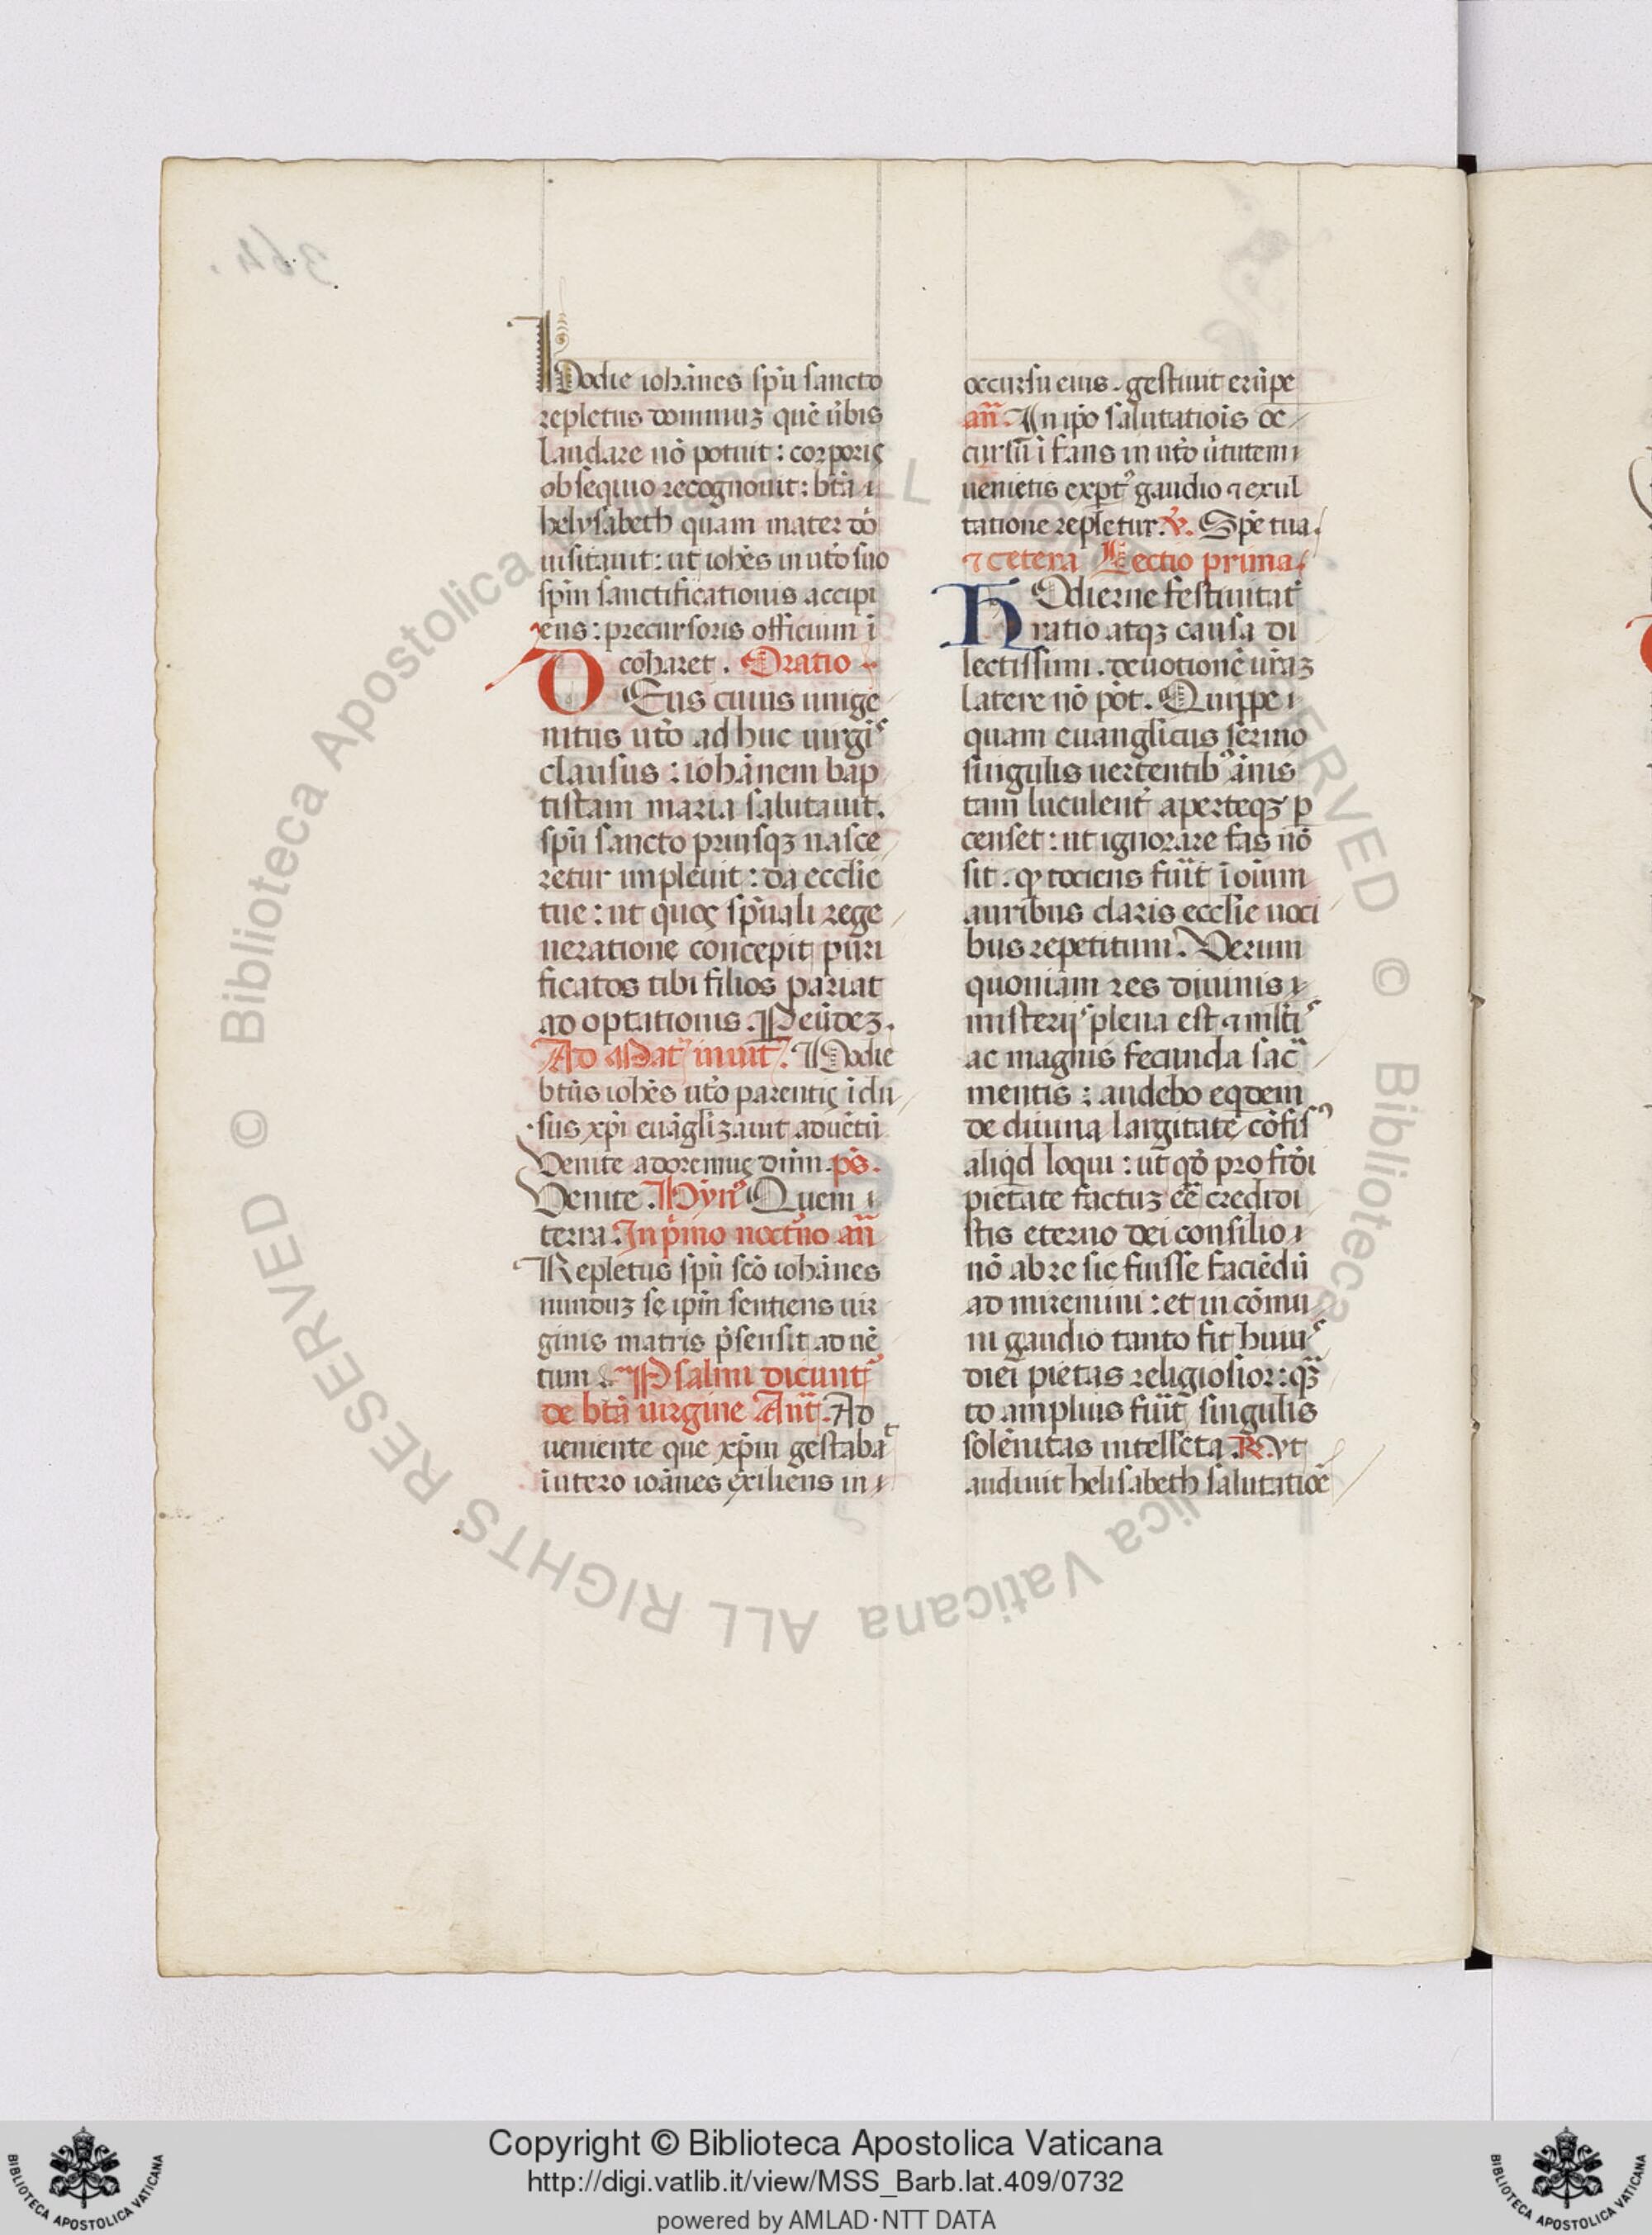 Hodie ioha̅nes sp̅u sancto
repletus dominuʒ que̅ u̅bis
laudare no̅ potuit : corporis
obsequio recognouit : bt̅a
helysabeth quam mater do̅
uisitauit : ut ioh̅es in ut̅o suo
sp̅m sanctificationis accipi
ens : precursoris officium i̅
coharet . Oratio
DEus cuius unige
nitus ut̅o ad huc uirgis
clausus : ioha̅nem bap
tistam maria salutauit.
sp̅u sancto priusqʒ nasce
retur impleuit : da ecclie
tue : ut quos sp̅uali rege
neratione concepit puri
ficatos tibi filios pariat
adoptationis . Peu̅deʒ.
Ad Mat̅ inuit̅. Hodie
bt̅us ioh̅es ut̅o parentis i̅clu
sus xp̅i eua̅glizauit aduentu̅
Venite adoremus dn̅m . ps̅.
Venite . Hyn̅ Quem
terra. In p̅mo noct̅no an̅
Repletus sp̅u sco̅ ioha̅nes
munduʒ se ip̅m sentiens uir
ginis matris p̅sensit adue̅
tum . Psalmi dicunt̅
de bt̅a uirgine Ant̅. Ad
ueniente que xp̅m gestabat
i̅utero ioa̅nes exiliens in
occursu eius . gestiuit eru̅pe
an̅. In ip̅o salutatiois̅ oc
cursu̅ i̅fans in ut̅o u̅tutem
uenie̅tis exp̅t̅ gaudio ⁊ exul
tatione repletur . ℣. Spe̅ tua .
⁊ cetera Lectio prima
HOdierne festiuitat̅
ratio atqʒ causa di
lectissimi . deuotione̅ ur̅aʒ
latere no̅ po̅t . Quippe
quam euanglicus sermo
singulis uertentib᾽ a̅nis
tam luculent̅ aperteqʒ p̲
censet : ut ignorare fas no̅
sit . qꝫ tociens fuit̅ i̅ oi̅um
auribus claris ecclie uoci
bus repetitum . Verum
quoniam res diuinis
misteriis plena est ⁊ mlt̅is
ac magnis fecunda sac̅
mentis : audebo eq̇dem
de diuina largitate co̅fis᾽
aliq̇d loqui : ut qd̅ pro fr̅oi
pietate factuʒ ee̅ credidi
stis eterno dei consilio
no̅ abre sic fuisse facie̅du̅
ad miremini : et in co̅mu
ni gaudio tanto fit huius
diei pietas religiosior : qua̅
to amplius fuit̅ singulis
sole̅nitas intellecta . ℟. Vt
audiuit helisabeth salutatioe̅
Copyright © Biblioteca Apostolica Vaticana
http://digi.vatlib.it/view/MSS_Barb.lat.409/0732
powered by AMLAD·NTT DATA